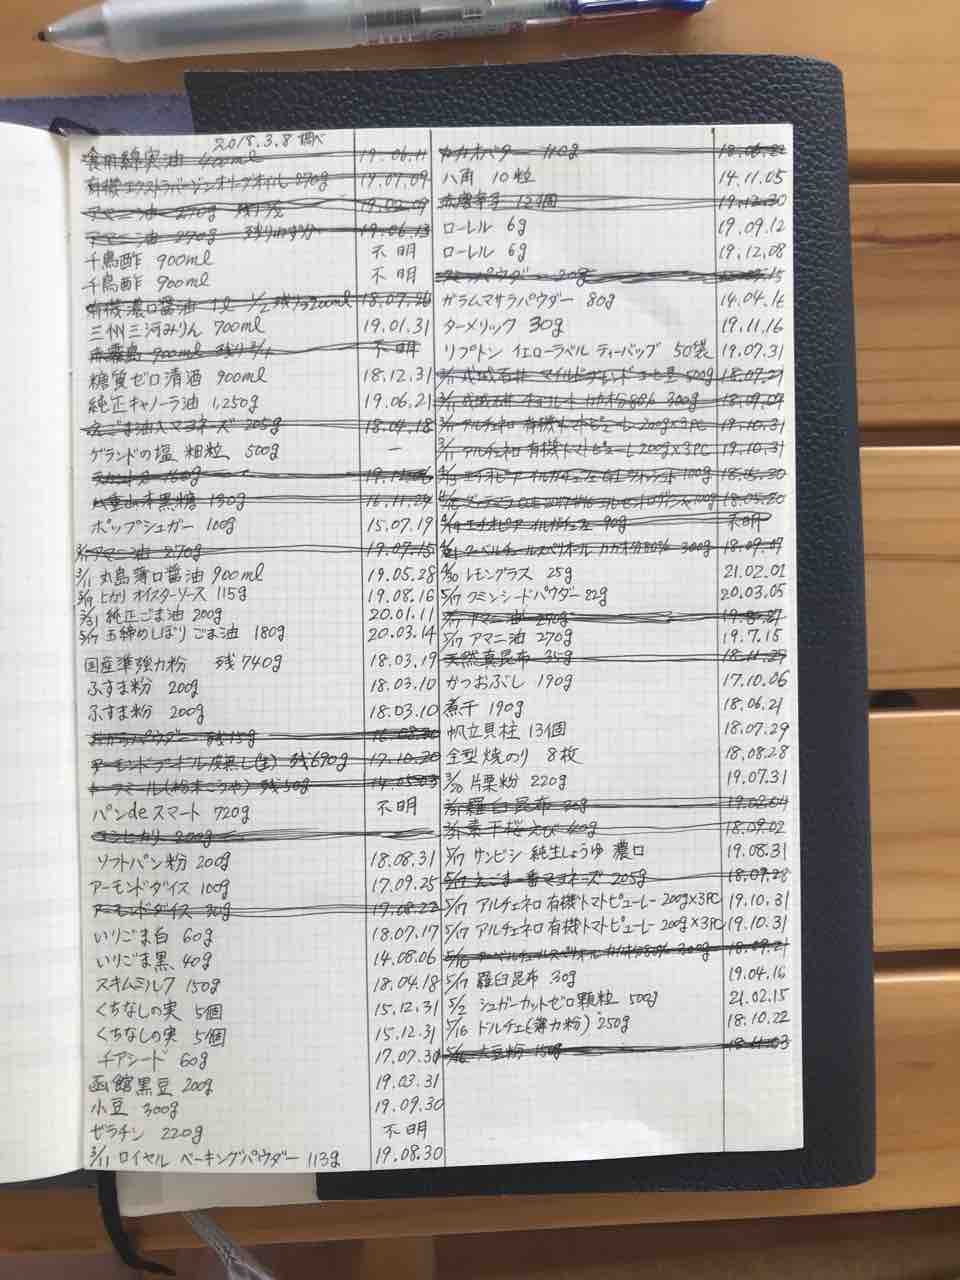 2018.3.8 調べ
食用綿実油 400ml 19.06.11
有機エクストラバージンオリーブオイル 270g 19.07.09
アマニ油 270g 残1/2 19.02.09
アマニ油 270g 残りわずか 19.06.13
千鳥酢 900ml 不明
千鳥酢 900ml 不明
有機濃口醤油 1l 1/2 残 18.07.26
三州三河みりん 700ml 19.01.31
赤霧島 900ml 残り3/4 不明
糖質ゼロ清酒 900ml 18.12.31
純正キャノーラ油 1,250g 19.06.21
えごま油入マヨネーズ 205g 18.04.18
ゲランドの塩 細粒 500g ー
160g
八重山本黒糖 130g 16.11.24
ポップシュガー 100g 15.07.19
アマニ油 270g 19.07.15
3/11 丸島薄口醤油 900ml 19.05.28
3/17 ヒカリ オイスターソース 115g 19.08.16
3/31 純正ごま油 200g 20.01.11
5/17 玉締めしぼり ごま油 180g 20.03.14
国産準強力粉 残740g 18.03.19
ふすま粉 200g 18.03.10
ふすま粉 200g 18.03.10
おからパウダー 残15g 16.08.30
アーモンドプードル皮無し(生) 残690g 17.10.20
(粉末こうや) 残50g 14.05.03
パンdeスマート 720g 不明
コシヒカリ 200g
ソフトパン粉 200g 18.08.31
アーモンドダイス 100g 17.09.25
アーモンドダイス 30g 17.08.22
いりごま白 60g 18.07.17
いりごま黒 40g 14.08.06
スキムミルク 150g 18.04.18
くちなしの実 5個 15.12.31
くちなしの実 5個 15.12.31
チアシード 60g 17.07.30
函館黒豆 200g 19.03.31
小豆 300g 19.09.30
ゼラチン 220g 不明
3/11 ロイヤル ベーキングパウダー 113g 19.08.30
カカオバター 110g 18.06.22
八角 10粒 14.11.05
赤唐辛子 12個 19.12.30
ローレル 6g 19.09.12
ローレル 6g 19.12.08
パウダー 20g
ガラムマサラパウダー 80g 14.04.16
ターメリック 30g 19.11.16
リプトン イエローラベル ティーバッグ 50袋 19.07.31
3/11 成城石井 マイルドブレンドコーヒー豆 500g 18.07.21
3/11 成城石井 チョコレート カカオ分88% 300g 18.09.09
3/11 アルチェネロ 有機トマトピューレー 200g×3PC 19.10.31
3/11 アルチェネロ 有機トマトピューレー 200g×3PC 19.10.31
エチオピア イルガチェフェ G1 ウォッシュト 100g 18.05.30
100g 18.05.20
エチオピア イルガチェフェ 90g 不明
クーベルチュールスペリオール カカオ分80% 300g 18.09.27
4/30 レモングラス 25g 21.02.01
5/17 クミンシードパウダー 82g 20.03.05
アマニ油 270g 19.8.27
5/17 アマニ油 270g 19.7.15
天然真昆布 35g 18.11.29
かつおぶし 190g 17.10.06
煮干 190g 18.06.21
帆立貝柱 13個 18.07.29
全型焼のり 8枚 18.08.28
3/20 片栗粉 220g 19.07.31
羅臼昆布 30g 19.02.04
素干桜えび 40g 18.09.02
5/17 サンビシ 純生しょうゆ 濃口 19.08.31
5/17 えごま一番マヨネーズ 205g 18.09.28
5/17 アルチェネロ 有機トマトピューレー 200g×3PC 19.10.31
5/17 アルチェネロ 有機トマトピューレー 200g×3PC 19.10.31
クーベルチュールスペリオール カカオ分80% 300g 18.09.21
5/17 羅臼昆布 30g 19.04.16
5/2 シュガーカットゼロ顆粒 500g 21.02.15
5/16 ドルチェ(薄力粉) 250g 18.10.22
5/16 大豆粉 150g 18.11.03